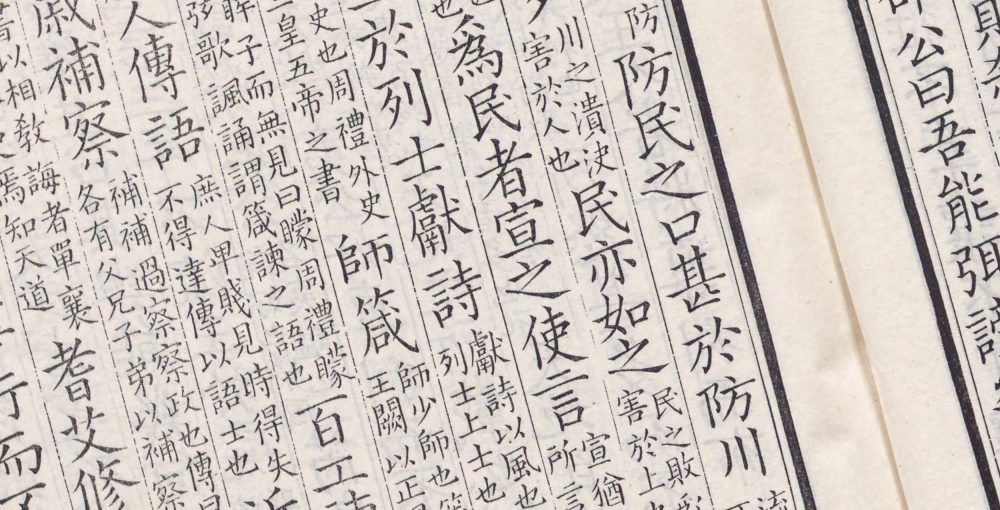 公曰吾能弭謗
防
防民之口甚於防川
流
川之潰決
害於人也
民亦如之
民之敗
害於上也
為民者宣之使言
宣猶
所言
於列士獻詩
獻詩以風也
列士上士也
史也周禮外史
皇五帝之書
師箴
師少師也箴
王闕以正
眸子而無見曰矇周禮矇
弦歌諷誦謂箴諫之語也
百工
人傳語
庶人卑賤見時得失
不得達傳以語士也
近
戚補察
補補過察察政也傳曰
各有父兄子弟以補察
以相教誨者單襄
焉知天道
耆艾修
行而不